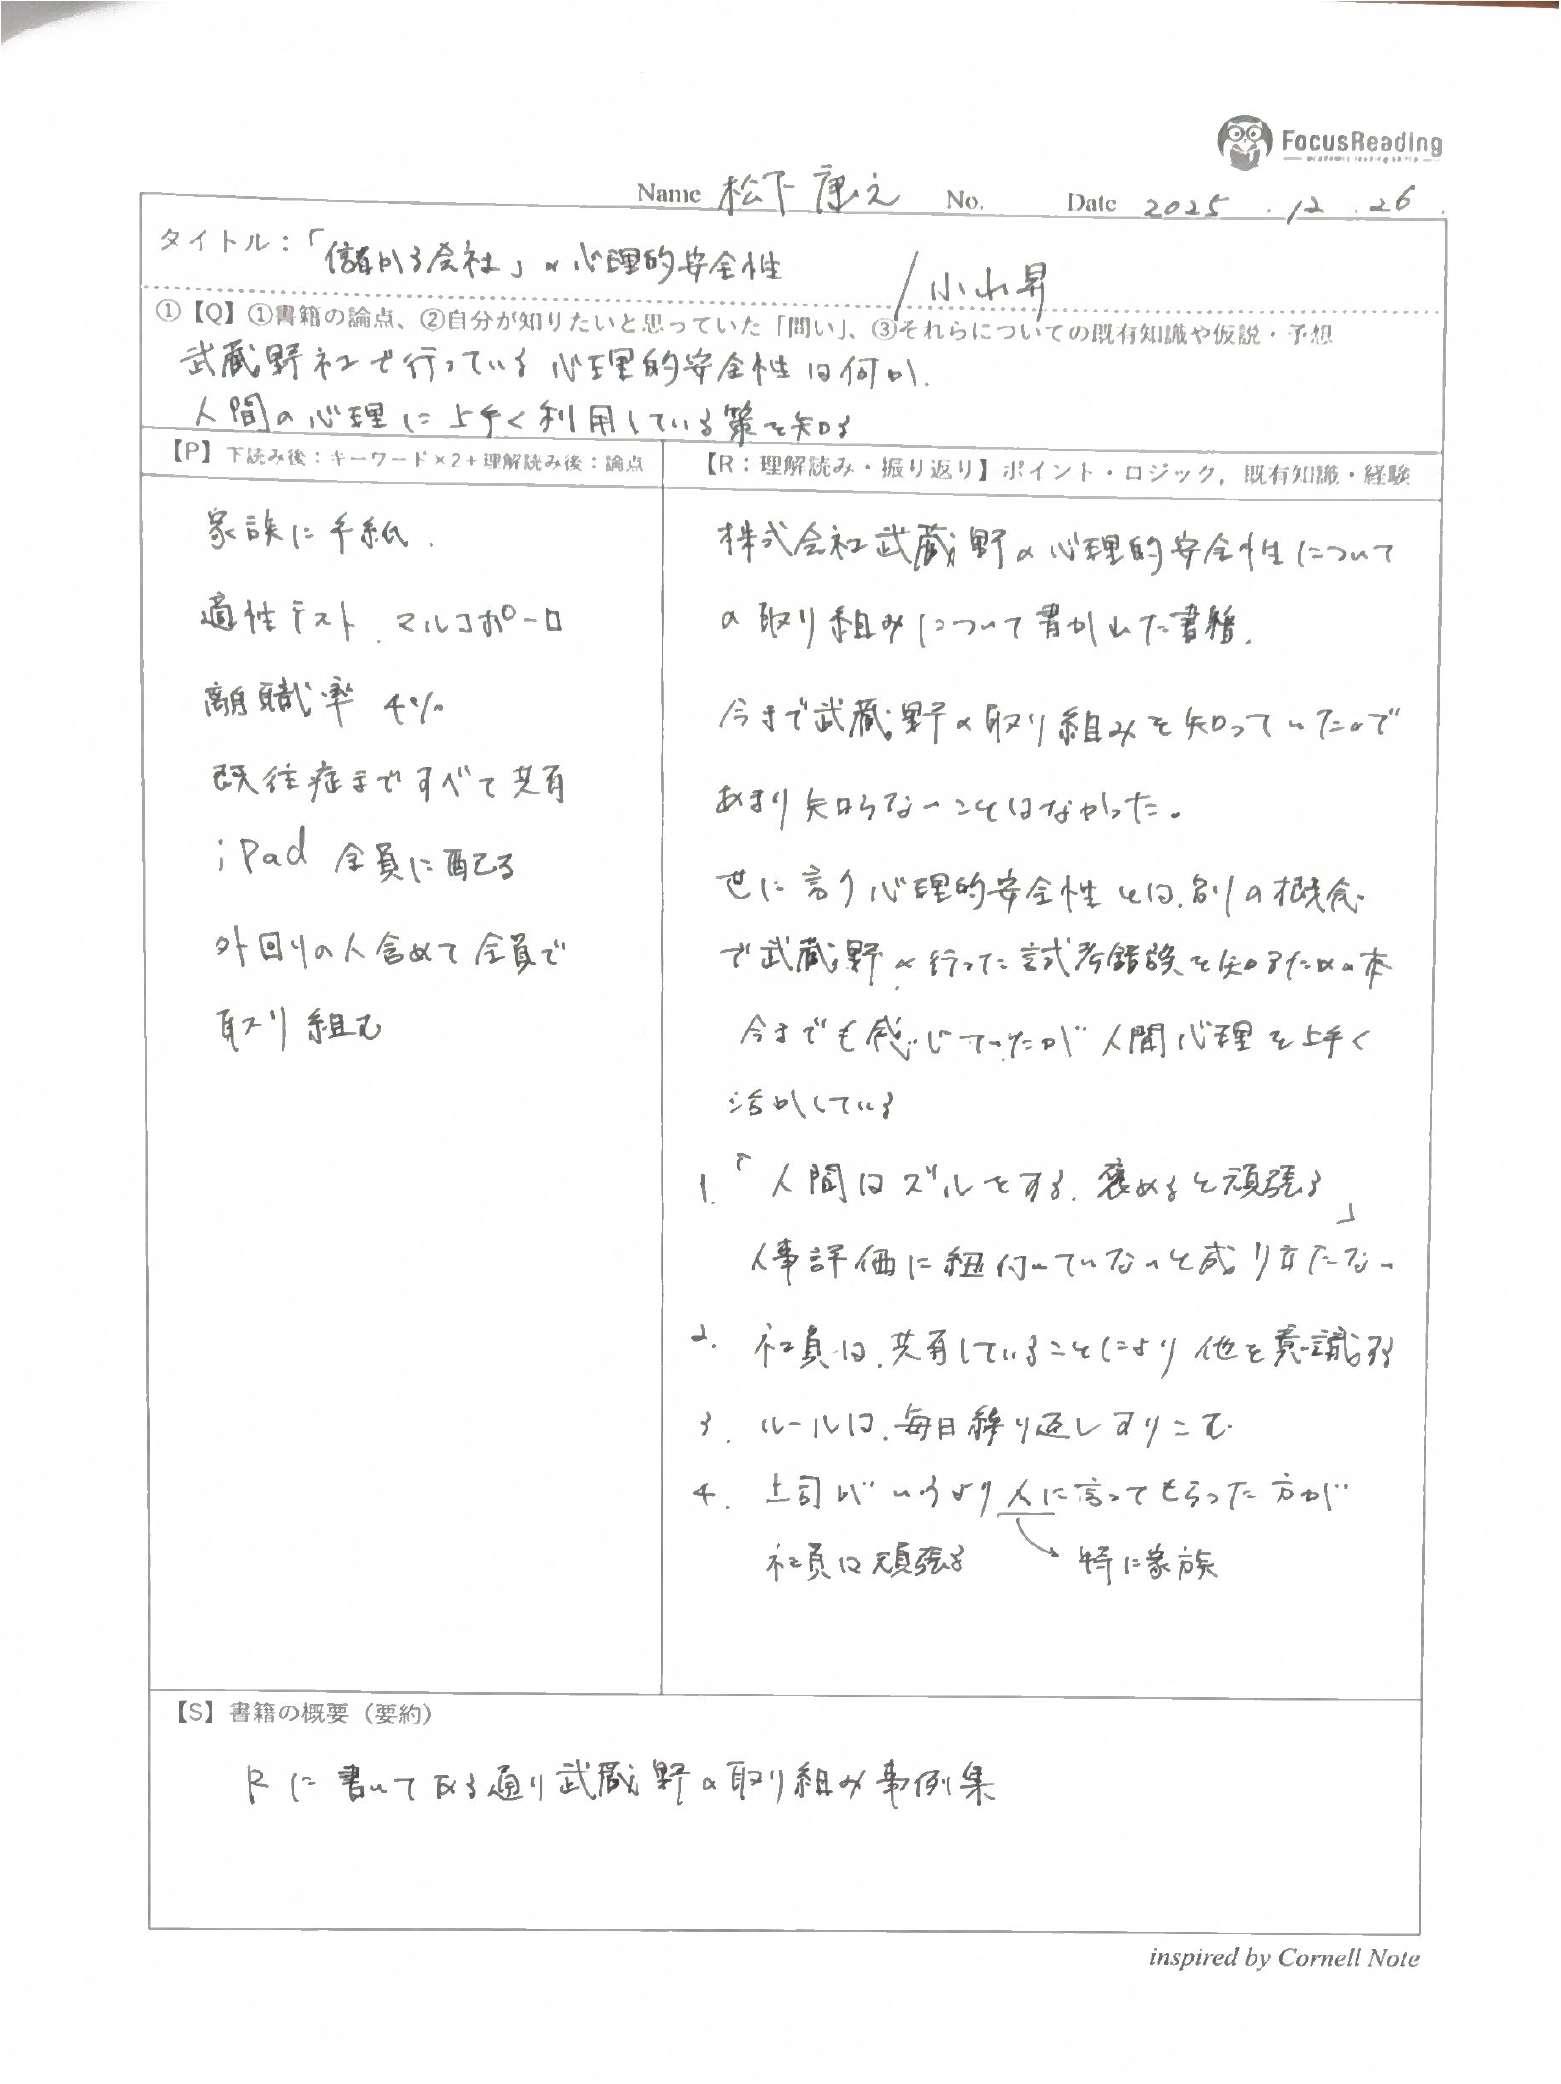 FocusReading
Name 松下康之 No. Date 2025.12.26.
タイトル：「儲かる会社」の心理的安全性 / 小山昇
①【Q】①書籍の論点、②自分が知りたいと思っていた「問い」、③それらについての既有知識や仮説・予想
武蔵野社で行っている心理的安全性は何か.
人間の心理に上手く利用している策を知る
【P】下読み後：キーワード×2+理解読み後：論点
【R：理解読み・振り返り】ポイント・ロジック，既有知識・経験
家族に手紙.
適性テスト.マルコポーロ
離職率 4%
既往症まですべて共有
iPad 全員に配る
外回りの人含めて全員で
取り組む
株式会社武蔵野の心理的安全性について
の取り組みについて書かれた書籍.
今まで武蔵野の取り組みを知っていたので
あまり知らないことはなかった。
世に言う心理的安全性とは.別の概念
で武蔵野の行った試行錯誤を知るための本
今までも感じていたが人間心理を上手く
活かしている
1.「人間はズルをする.褒めると頑張る」
人事評価に紐付いていないと成り立たない
2. 社員は.共有していることにより他を意識する
3. ルールは.毎日繰り返しすりこむ
4. 上司がいうより人に言ってもらった方が
社員は頑張る → 特に家族
【S】書籍の概要（要約）
Rに書いてある通り武蔵野の取り組み事例集
inspired by Cornell Note